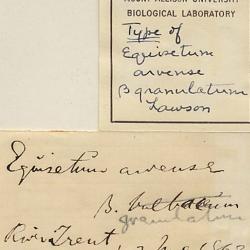 MOUNT ALLISON UNIVERSITY
BIOLOGICAL LABORATORY
Type of
Equisetum
arvense
β granulatum
Lawson
Equisetum arvense
β.
granulatum
River Trent